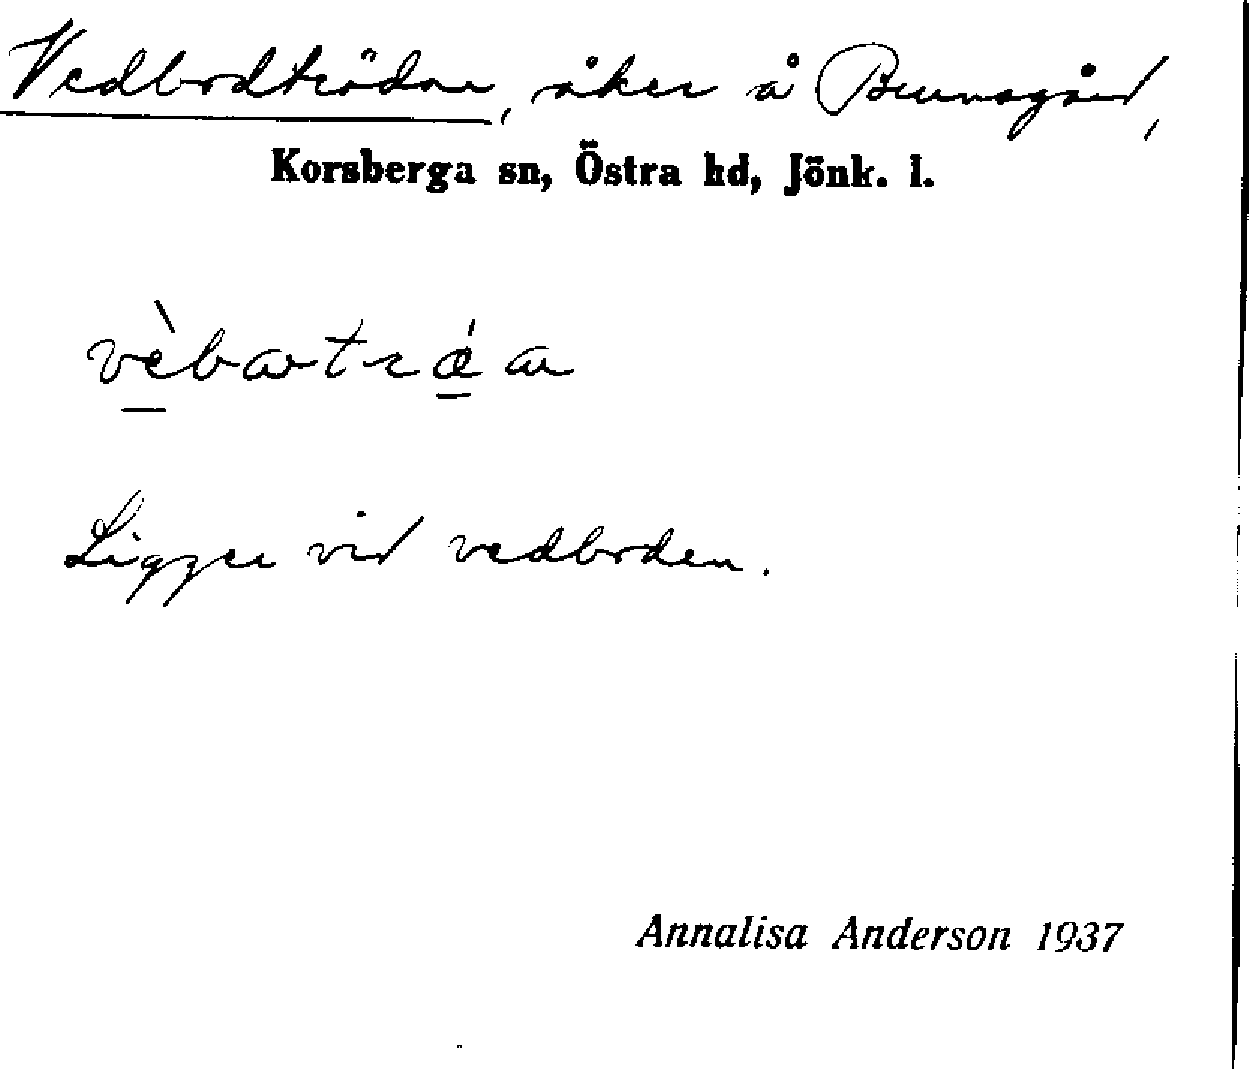 Vedbodträdan, åker å Brunsgård,
Korsberga sn, Östra hd, Jönk. l.
Ligger vid vedboden.
Annalisa Anderson 1937